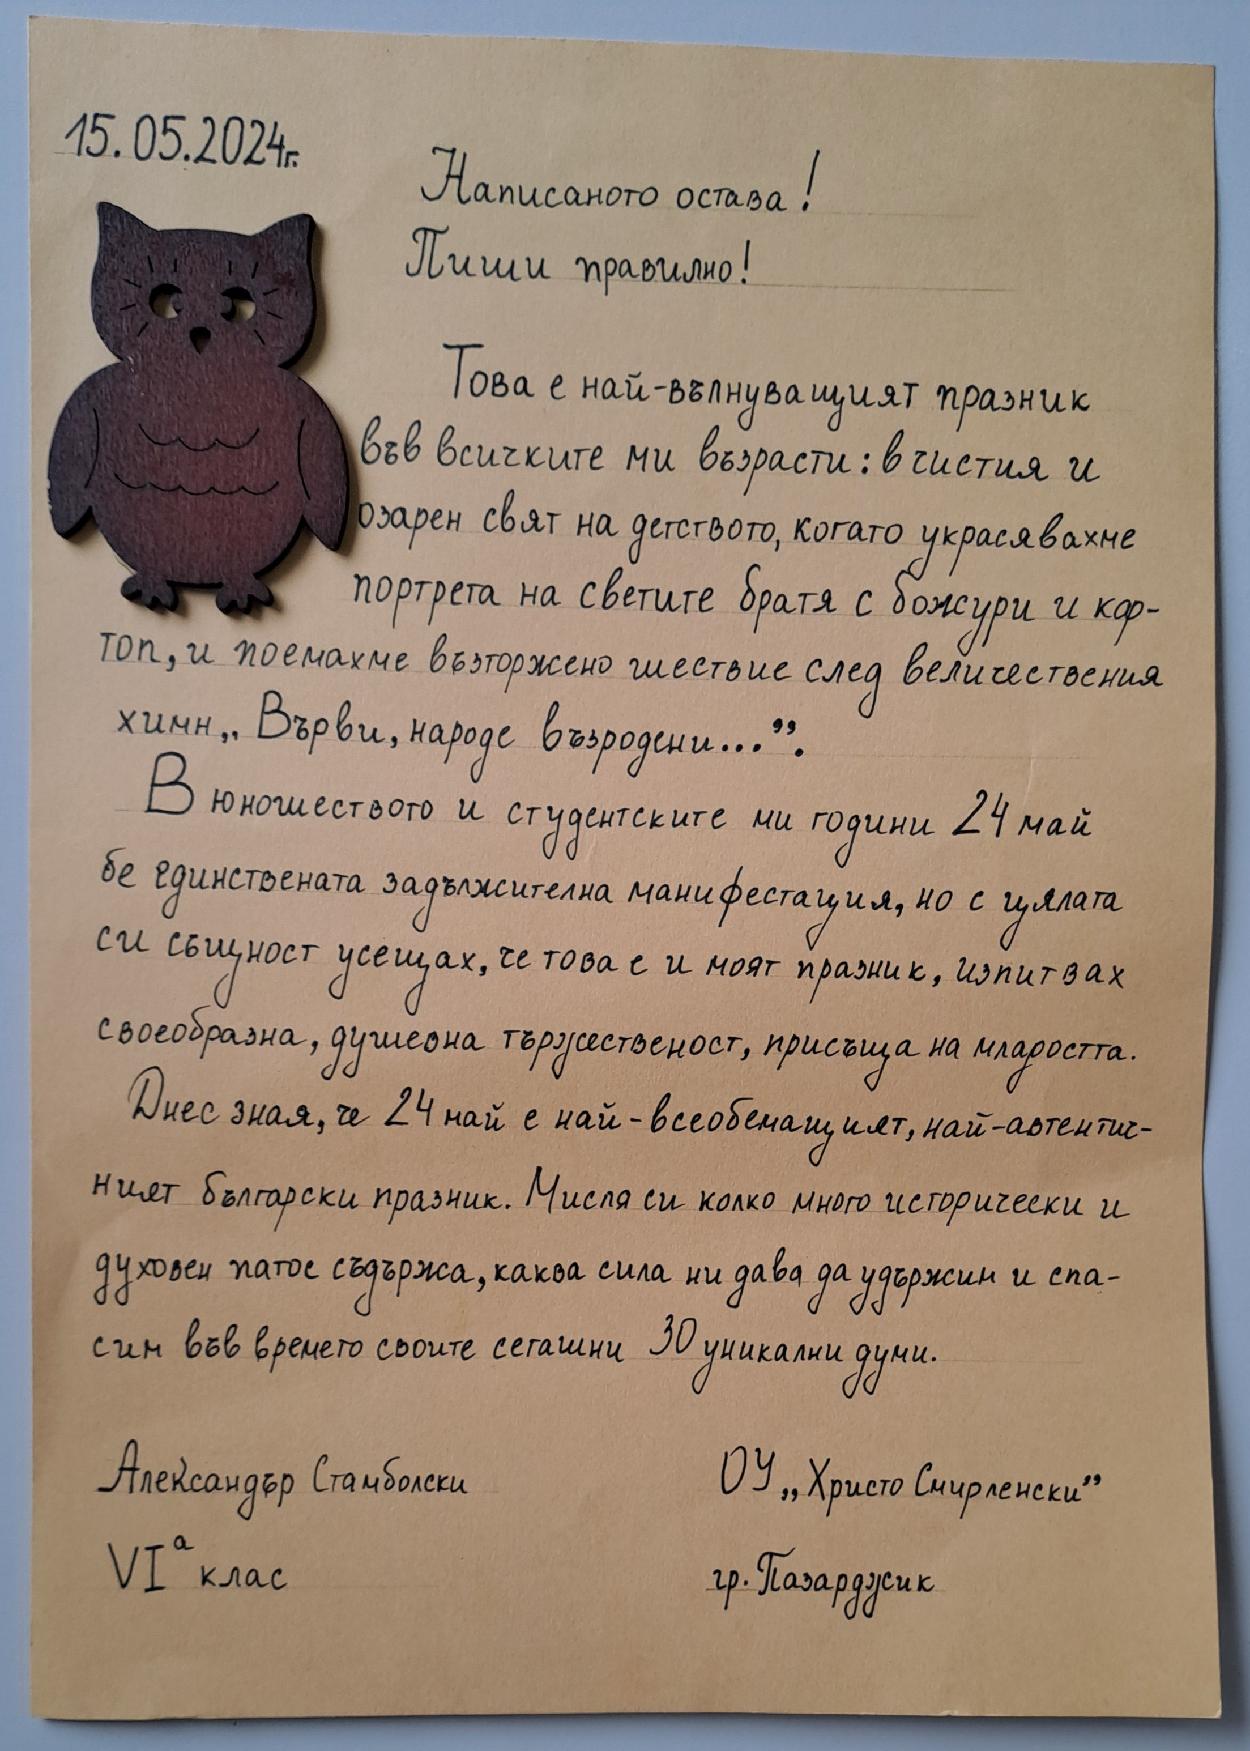 15.05.2024г.
Написаното остава!
Пиши правилно!
Това е най-вълнуващият празник
във всичките ми възрасти: в чистия и
озарен свят на детството, когато украсявахме
портрета на светите братя с божури и кар-
топ, и поемахме възторжено шествие след величествения
химн „Върви, народе възродени...”.
В юношеството и студентските ми години 24 май
бе единствената задължителна манифестация, но с цялата
си същност усещах, че това е и моят празник, изпитвах
своеобразна, душевна тържественост, присъща на младостта.
Днес зная, че 24 май е най-всеобемащият, най-автентич-
ният български празник. Мисля си колко много исторически и
духовен патос съдържа, каква сила ни дава да удържим и спа-
сим във времето своите сегашни 30 уникални думи.
Александър Стамболски
ОУ „Христо Смирленски”
VIа клас
гр. Пазарджик